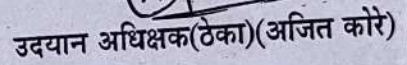 उदयान अधिक्षक(ठेका)(अजित कोरे)